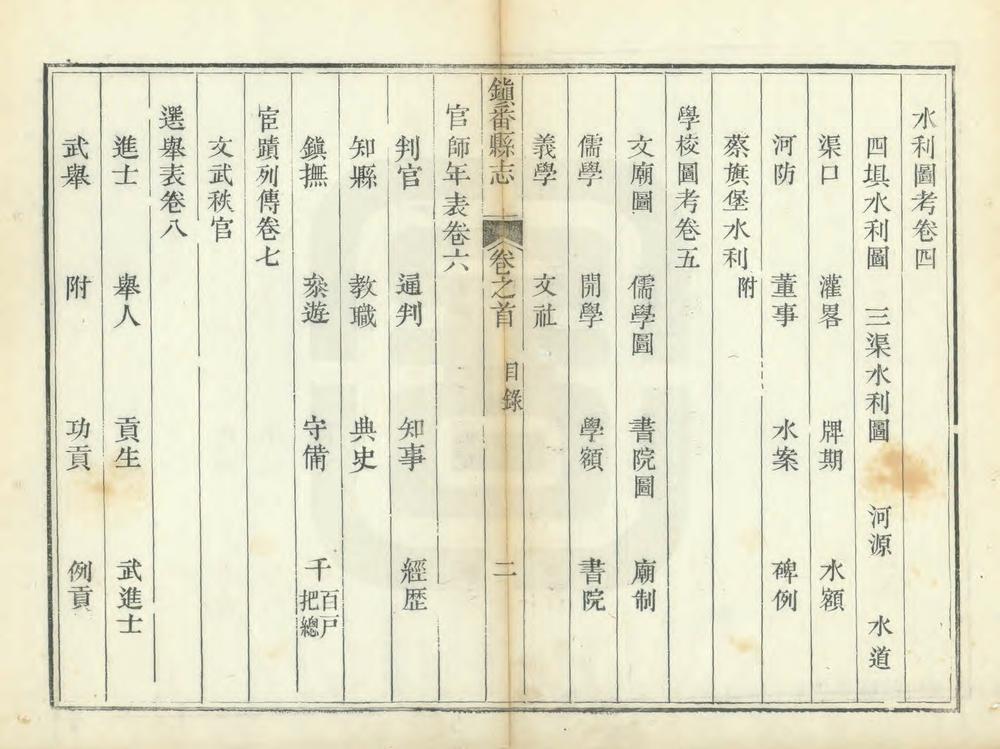 水利圖考卷四
四埧水利圖 三渠水利圖 河源 水道
渠口 灌畧 牌期 水額
河防 董事 水案 碑例
蔡旗堡水利附
學校圖考卷五
文廟圖 儒學圖 書院圖 廟制
儒學 開學 學額 書院
義學 文社
鎮番縣志 卷之首 目錄 二
官師年表卷六
判官 通判 知事 經歷
知縣 教職 典史
鎮撫 叅遊 守備 千百戶把總
宦蹟列傳卷七
文武秩官
選舉表卷八
進士 舉人 貢生 武進士
武舉 附 功貢 例貢